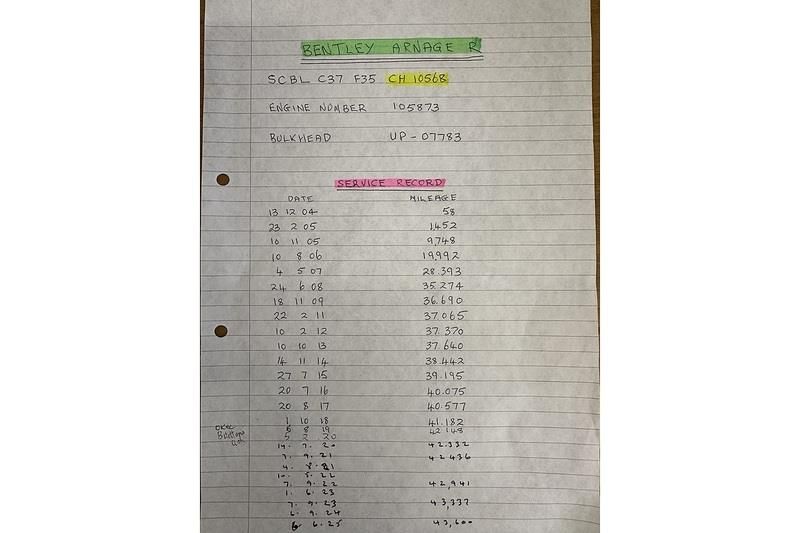 BENTLEY ARNAGE R
SCBL C37 F35 CH 10568
ENGINE NUMBER 105873
BULKHEAD UP - 07783
SERVICE RECORD
DATE MILEAGE
13 12 04 58
23 2 05 1,452
10 11 05 9,748
10 8 06 19,992
4 5 07 28.393
24 6 08 35.274
18 11 09 36.690
22 2 11 37.065
10 2 12 37.370
10 10 13 37.640
14 11 14 38.442
27 7 15 39.195
20 7 16 40.075
20 8 17 40.577
1 10 18 41.182
5 8 19 42 148
5 2 20
14. 7. 20 42.332
7. 9. 21 42 436
10. 5. 22
7. 9. 22 42,941
1. 6. 23
7. 9. 23 43,337
6. 9. 24
6. 6. 25 43,600